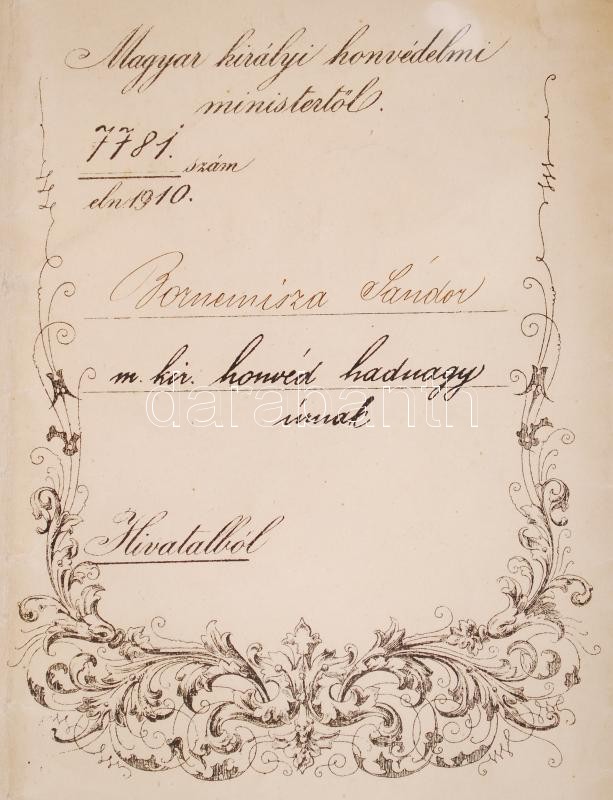 Magyar királyi honvédelmi
ministertől.
7781. szám
eln 1910.
Bornemisza Sándor
m. kir. honvéd hadnagy
úrnak
darabanth
Hivatalból